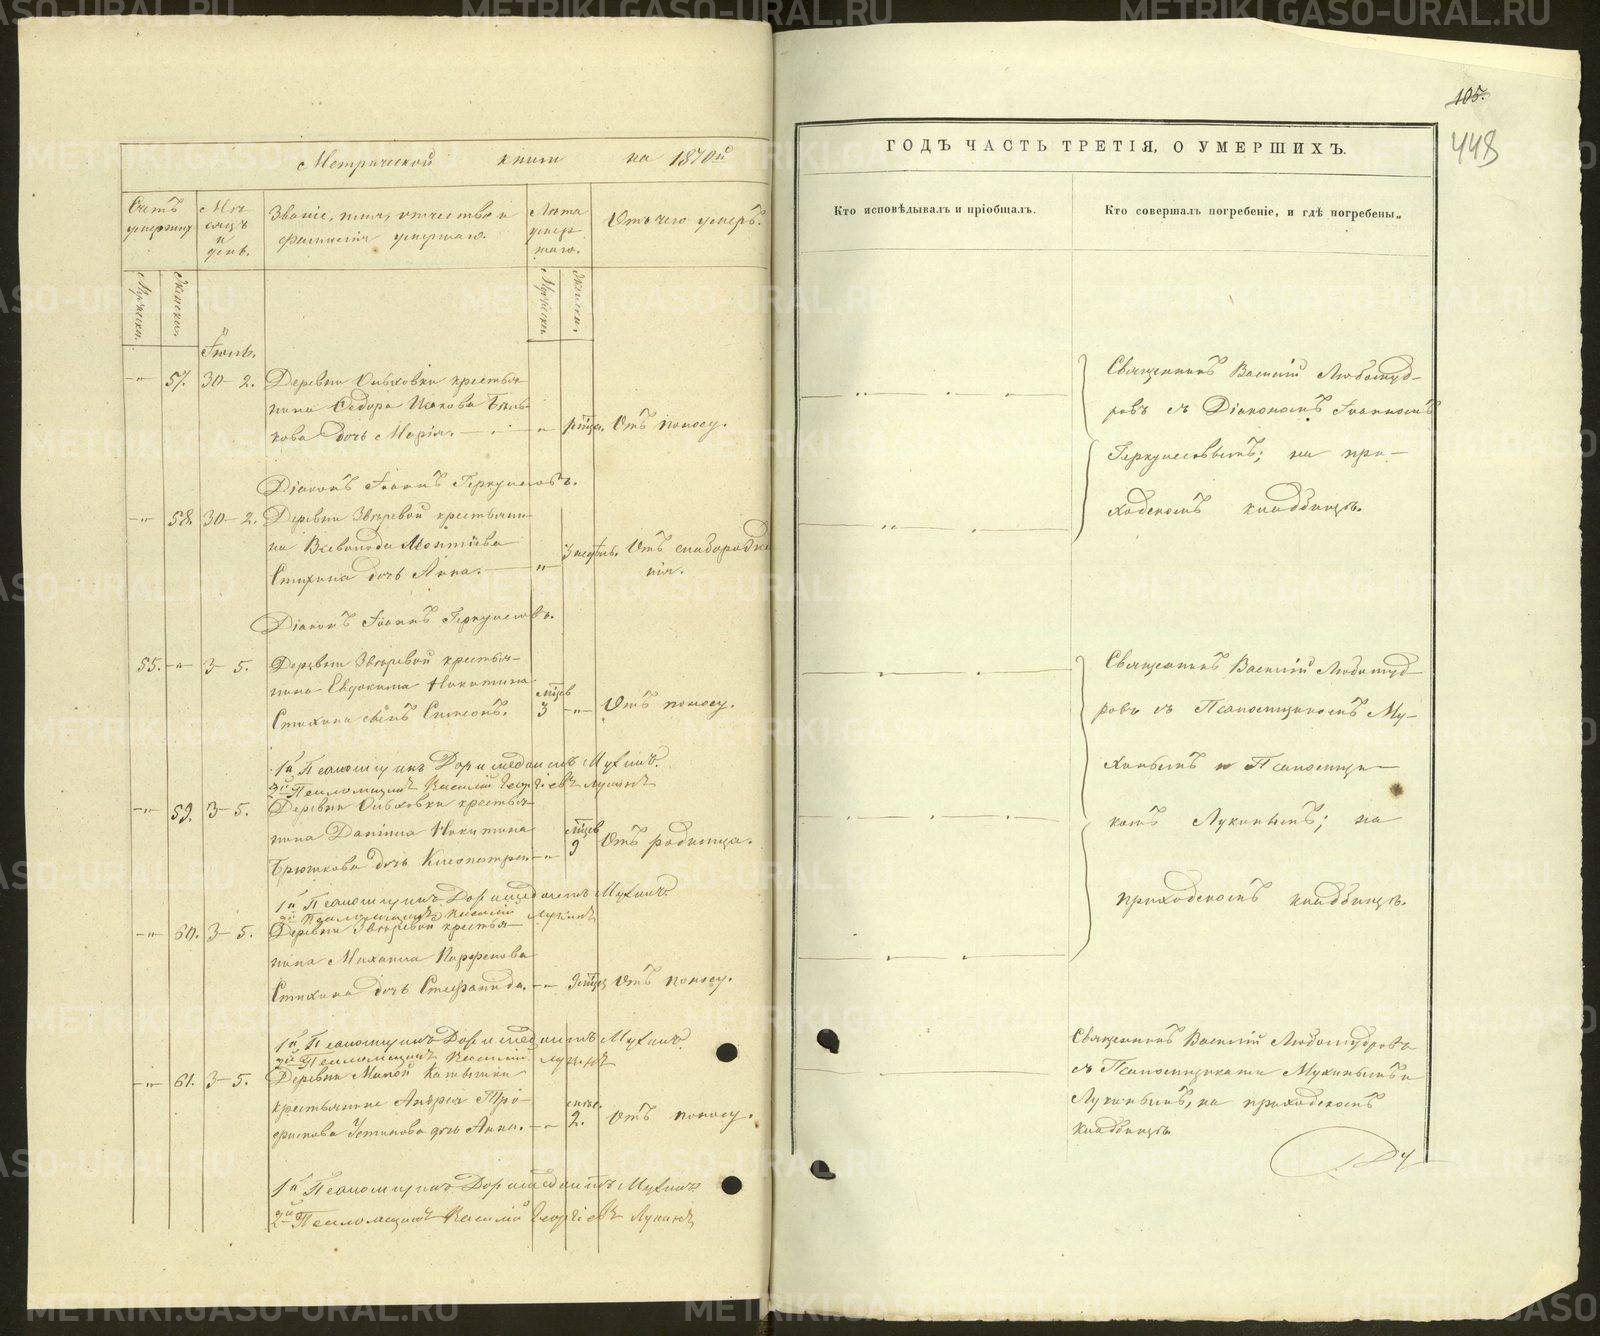 Метрической книги на 1870й
Счетъ умершихъ
Мѣсяцъ и день.
Званіе, имя, отчество и фамилія умершаго.
Лѣта умершаго.
Отъ чего умеръ.
Мужеска.
Женска.
Мужеска.
Женска.
Іюль.
-"- 57. 30- 2. Деревни Ольховки крестья-
нина Ѳедора Исакова Бѣль-
кова дочь Марія. -"- Отъ поносу.
Діаконъ Іоаннъ Геркулесовъ.
-"- 58. 30- 2. Деревни Звѣревой крестьяни-
на Всеволода Леонтіева
Стихина дочь Анна. -"- 3 недѣль. Отъ слаборожде
нія.
Діаконъ Іоаннъ Геркулесовъ.
55. -"- 3- 5. Деревни Звѣревой крестья-
нина Евдокима Никитина
Стихина сынъ Симеонъ. 3 мѣсцев -"- Отъ поносу.
1й Псаломщикъ Доримедонтъ Мухинъ.
2й Псаломщикъ Василій Георгіевъ Лукинъ
-"- 59. 3- 5. Деревни Ольховки крестья-
нина Даніила Никитина
Брюшкова дочь Клеопатра. -"- 9 мѣсцев Отъ родимца.
1й Псаломщикъ Доримедонтъ Мухинъ.
2й Псаломщикъ Василій Лукинъ
-"- 60. 3- 5. Деревни Звѣревой крестья-
нина Михаила Парфенова
Стихина дочь Стефанида. -"- Отъ поносу.
1й Псаломщикъ Доримедонтъ Мухинъ.
2й Псаломщикъ Василій Лукинъ
-"- 61. 3- 5. Деревни Малой
крестьянина Андрея Тро-
фимова Устинова дочь Анна. -"- 2. Отъ поносу.
1й Псаломщикъ Доримедонтъ Мухинъ
2й Псаломщикъ Василій Георгіевъ Лукинъ
105.
448
ГОДЪ ЧАСТЬ ТРЕТІЯ, О УМЕРШИХЪ.
Кто исповѣдывалъ и пріобщалъ.
Кто совершалъ погребеніе, и гдѣ погребены.
Священникъ Василій Любомуд-
ровъ съ Діакономъ Іоанномъ
Геркулесовымъ; на при-
ходскомъ кладбищѣ.
Священникъ Василій Любомуд-
ровъ съ Псаломщикомъ Му-
хинымъ и Псаломщи-
комъ Лукинымъ; на
приходскомъ кладбищѣ.
Священникъ Василій Любомудровъ
съ Псаломщиками Мухинымъ и
Лукинымъ, на приходскомъ
кладбищѣ.
METRIKI.GASO-URAL.RU